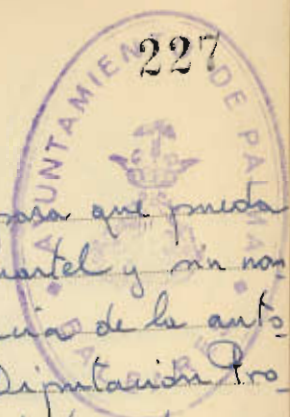 227
AYUNTAMIENTO DE PALMA
BALEARES
para que pueda
uartel y su nom
cia de la auto
Diputación Pro